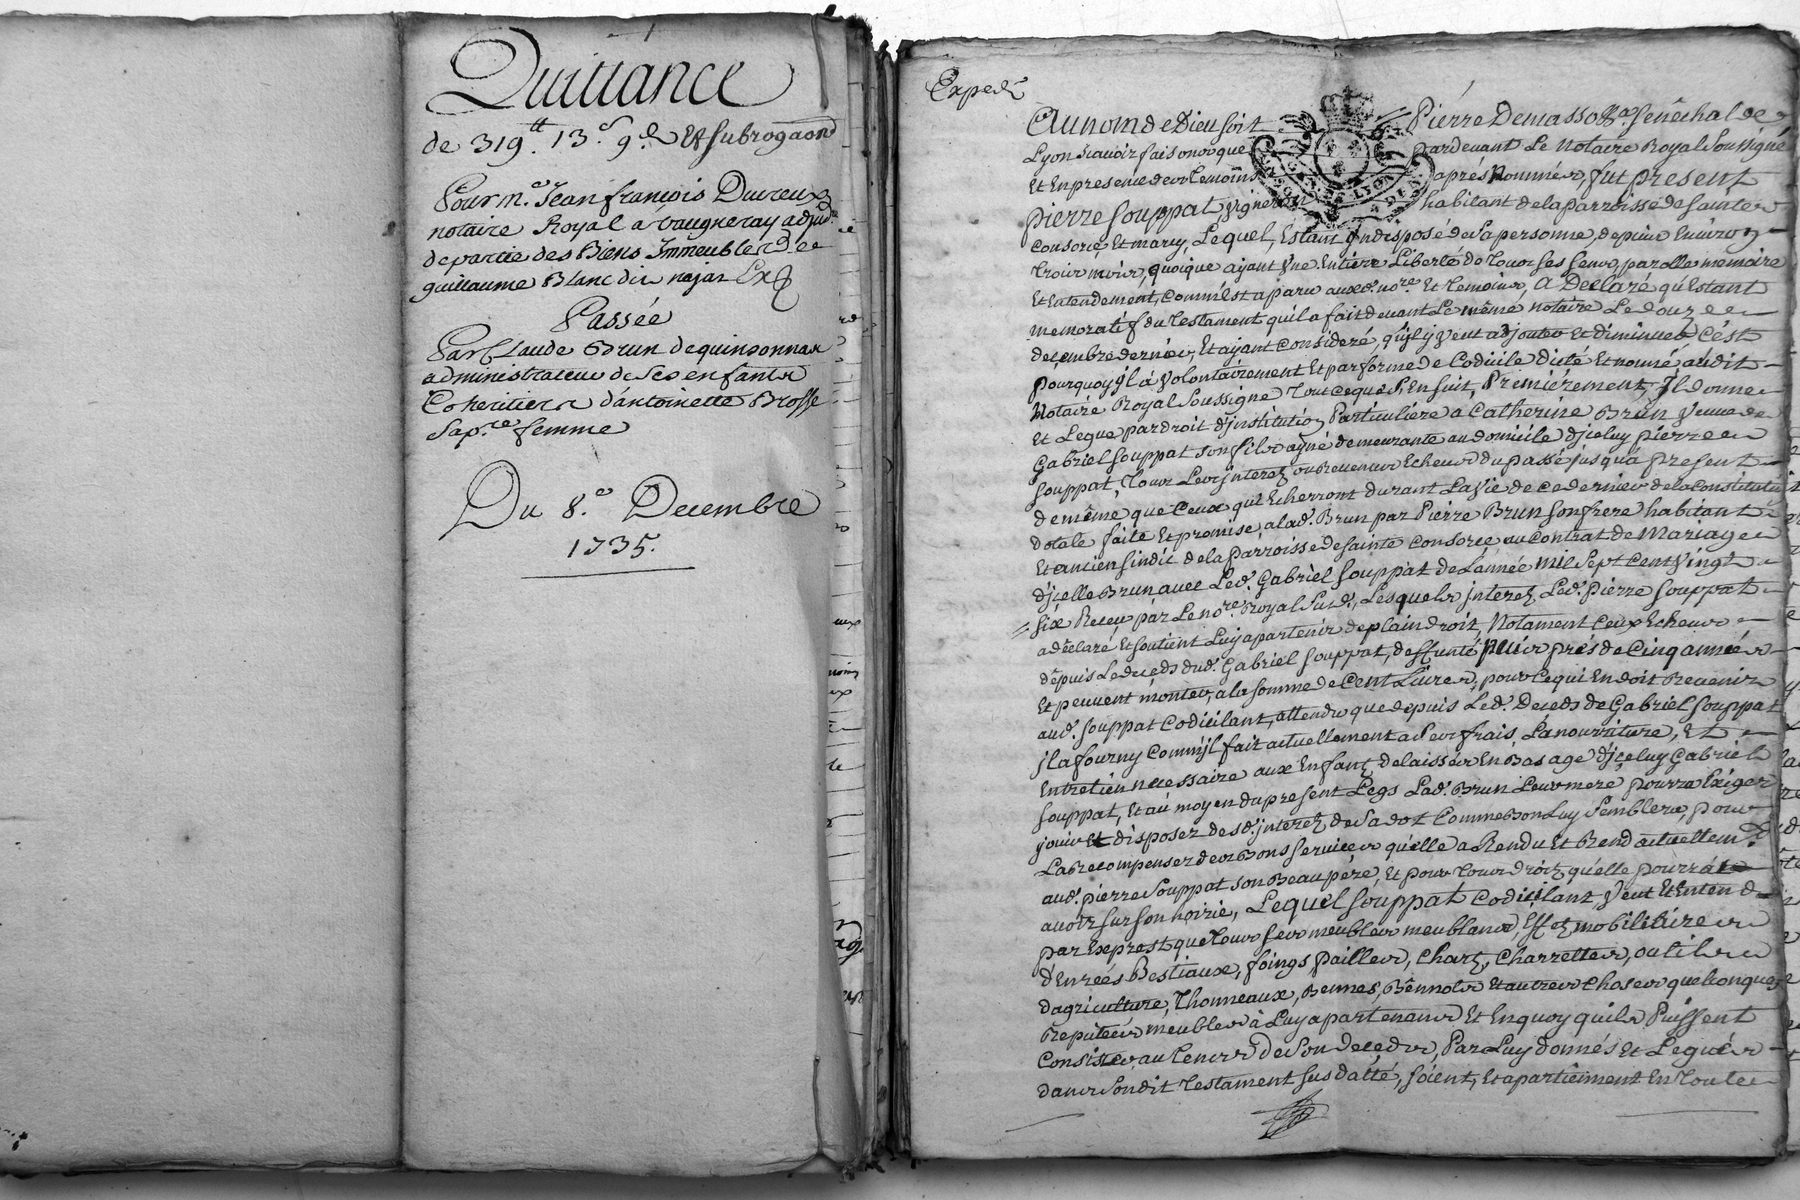 Quittance
de 319 tt. 13 s. 9 d. Et subrogaon
Pour m.e Jean françois Duvreux
notaire Royal a vaugneray adjud.re
de partie des Biens Immeubles de
guillaume Blanc dit najat
Passée
Par Claude Brun de quinsonnas
administrateur de ses enfants
Coheritiers d'antoinette Brosse
sa p.re femme
Du 8.e Decembre
1735.
Exped.é
Au nom de Dieu soit Pierre Demasso sénéchal de
Lyon scavoir faisons que pardevant Le Notaire Royal Soussigné
Et En presence des temoins aprés Nommés, fut present
pierre Souppat, vigneron habitant de la parroisse de sainte
Consorce, Et marcy, Lequel, Estant Indisposé de sa personne, depuis Environ
trois mois, quoique ayant Une Entiere Liberté de tous ses sens, parolle memoire
Et Entendement, comm'il est aparu auxd. no.re Et temoins, A Déclaré qu'Estant
memoratif du testament qu'il a fait devant Le même notaire Le douze
décembre dernier, Et ayant consideré, qu'il y veut adjouter et diminuer C'ést
pourquoy jl à Volontairement Et par forme de Codicile dicté Et nommé, audit
Notaire Royal Soussigné tout ce que s'Ensuit, Premiérement, Jl donne
Et Legue, par droit d'jnstitution Particulière a Catherine Brun Veuve de
Gabriel Souppat son fils ayné demeurante au domicile d'jceluy pierre
Souppat, tous Les jnterets ou Revenus Echeus du passé jusqu'a present
de même que Ceux qui Echerront durant La Vie de ce dernier de la Constitution
dotale faite Et promise, a lad. Brun par Pierre Brun son frere habitant
Et ancien sindic de la Parroisse de sainte Consorce au Contrat de Mariage
d'jcelle Brun avec Led. Gabriel Souppat de L'année mil Sept Cent Vingt
six Receu par Le no.re Royal Susd., Lesquels jnterets Led. Pierre Souppat
a déclaré Et soutient Luy apartenir de plain droit, Notament Ceux Echeus
dépuis Le decéds dud. Gabriel Souppat, deffunté puis prés de Cinq années
Et peuvent monter, a la somme de Cent Livres, pour ce qui En doit Revenir
aud. Souppat Codicilant, attendu que depuis Led. Deceds de Gabriel Souppat
jl a fourny Comm'jl fait actuellement a ses frais La nourriture, Et
Entretien necessaire aux Enfans delaissés En Bas age d'jceluy Gabriel
Souppat, Et au moyen du present Legs Lad. Brun Leur mere pourra Exiger
jouir Et disposer desd. jnterets de sa dot Comme Bon Luy semblera, pour
La Recompenser des Bons services qu'elle a Rendu Et Rend actuellem.t
aud. pierre Souppat son Beau pére, Et pour tous droits qu'elle pourrat
avoir sur son hoirie, Lequel Souppat Codicilant, Veut Et Entend
par Exprest que tous ses meubles meublans, Effets mobilitaires
d'Enrées Bestiaux, foings pailles, Chars, Charrettes, outils
d'agriculture, Thonneaux, Bennes, Bênnots Et autres Choses quelconques
Reputées meubles à Luy apartenans Et En quoy qu'ils Puissent
Consister au tems De Son Decéds, Par Luy donnés Et Legués
dans sondit testament susdatté, soient, Et apartiennent En toute